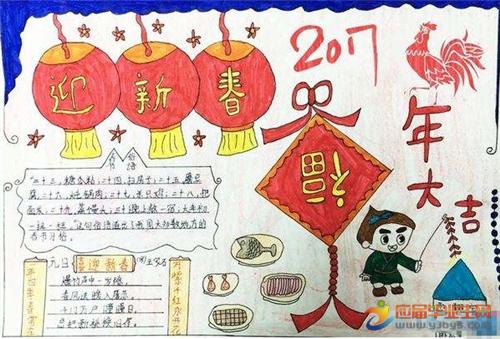 迎新春
2017
年大吉
福
俗语
"二十三,糖瓜粘,二十四,扫房子,二十五,磨豆
腐,二十六,炖锅肉,二十七,宰只鸡,二十八,把
面发,二十九,蒸馒头,三十晚上熬一宿,大年初
一扭一扭。"这句俗语道出了我国大部分地方的
春节习俗。
元日 喜迎新春 王安石
爆竹声中一岁除
春风送暖入屠苏
千门万户曈曈日
总把新桃换旧符
应届毕业生网